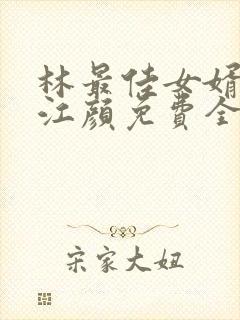 林最佳女婿
江颜免費全
宋家大妞